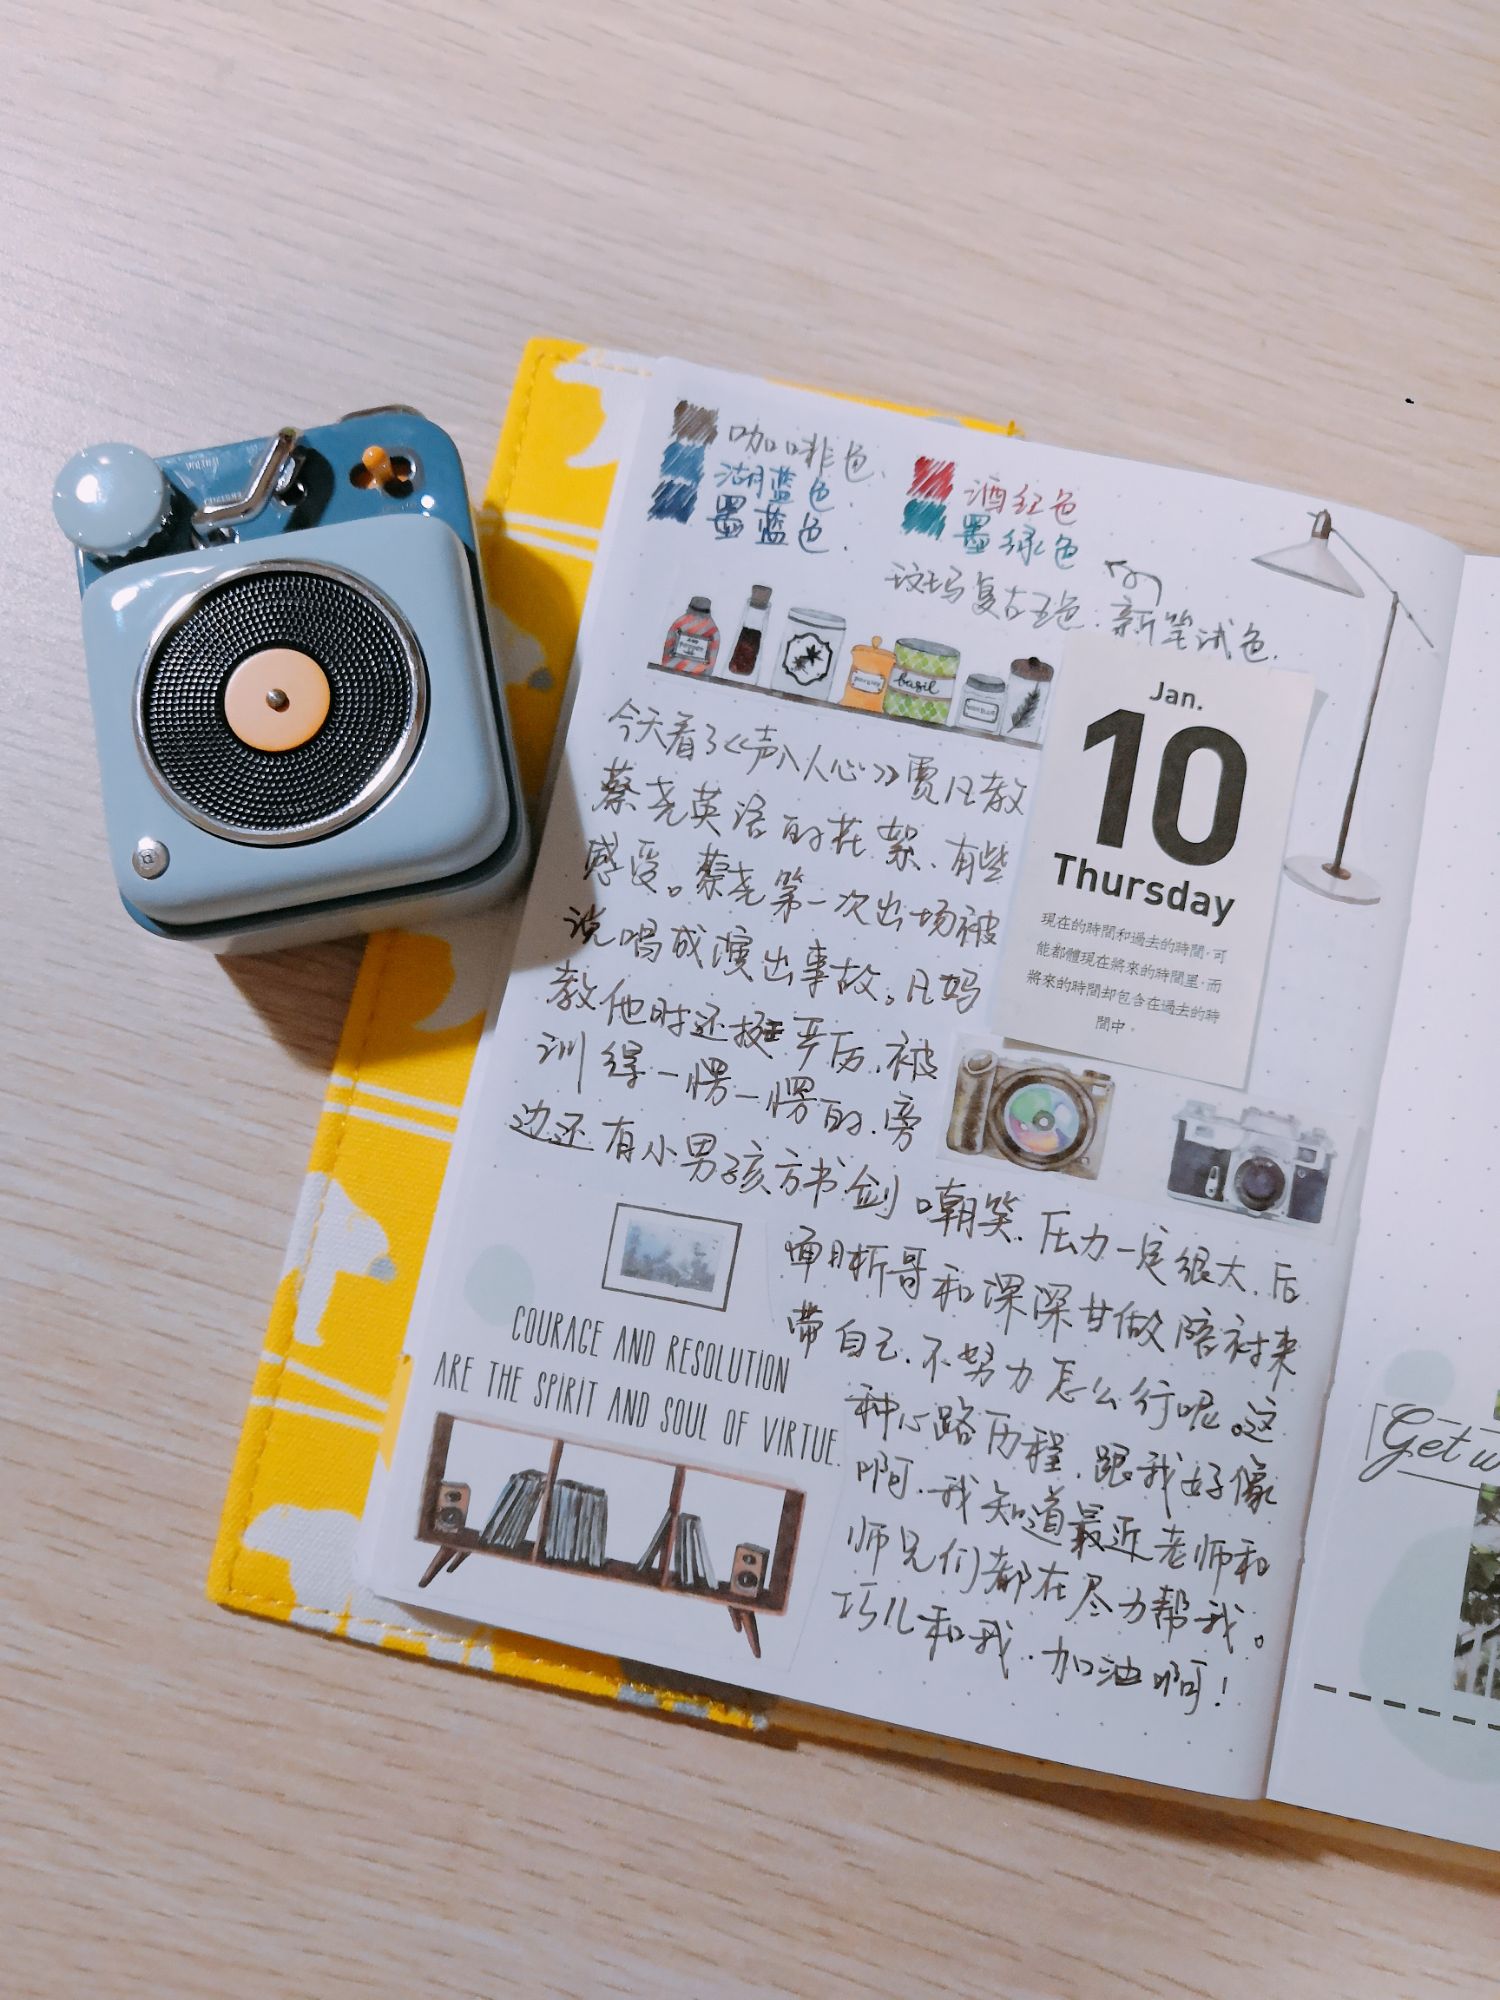 咖啡色、
湖蓝色
墨蓝色.
酒红色
墨绿色
斑马复古五色.新笔试色.
basil
Jan.
10
Thursday
現在的時間和過去的時間,可
能都體現在將來的時間里,而
將來的時間却包含在過去的時
間中。
今天看了《声入人心》贾凡教
蔡尧英语的花絮、有些
感受。蔡尧第一次出场被
说唱成演出事故。凡妈
教他时还挺严厉、被
训得一愣一愣的、旁
边还有小男孩方书剑嘲笑、压力一定很大、后
面晰哥和深深甘做陪衬来
带自己、不努力怎么行呢。这
种心路历程、跟我好像
啊、我知道最近老师和
师兄们都在尽力帮我。
巧儿和我、加油啊!
COURAGE AND RESOLUTION
ARE THE SPIRIT AND SOUL OF VIRTUE.
Get w